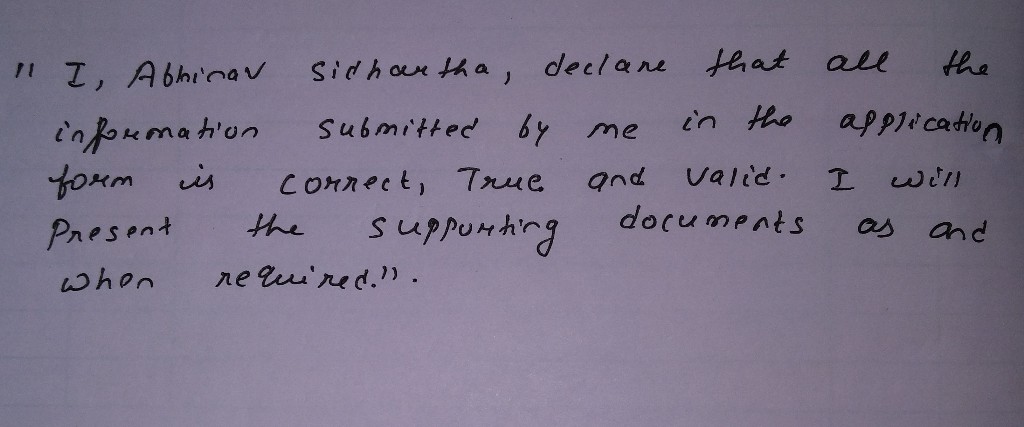 " I, Abhinav Sidhartha, declare that all the
information submitted by me in the application
form is correct, True and valid. I will
Present the supporting documents as and
when required.".